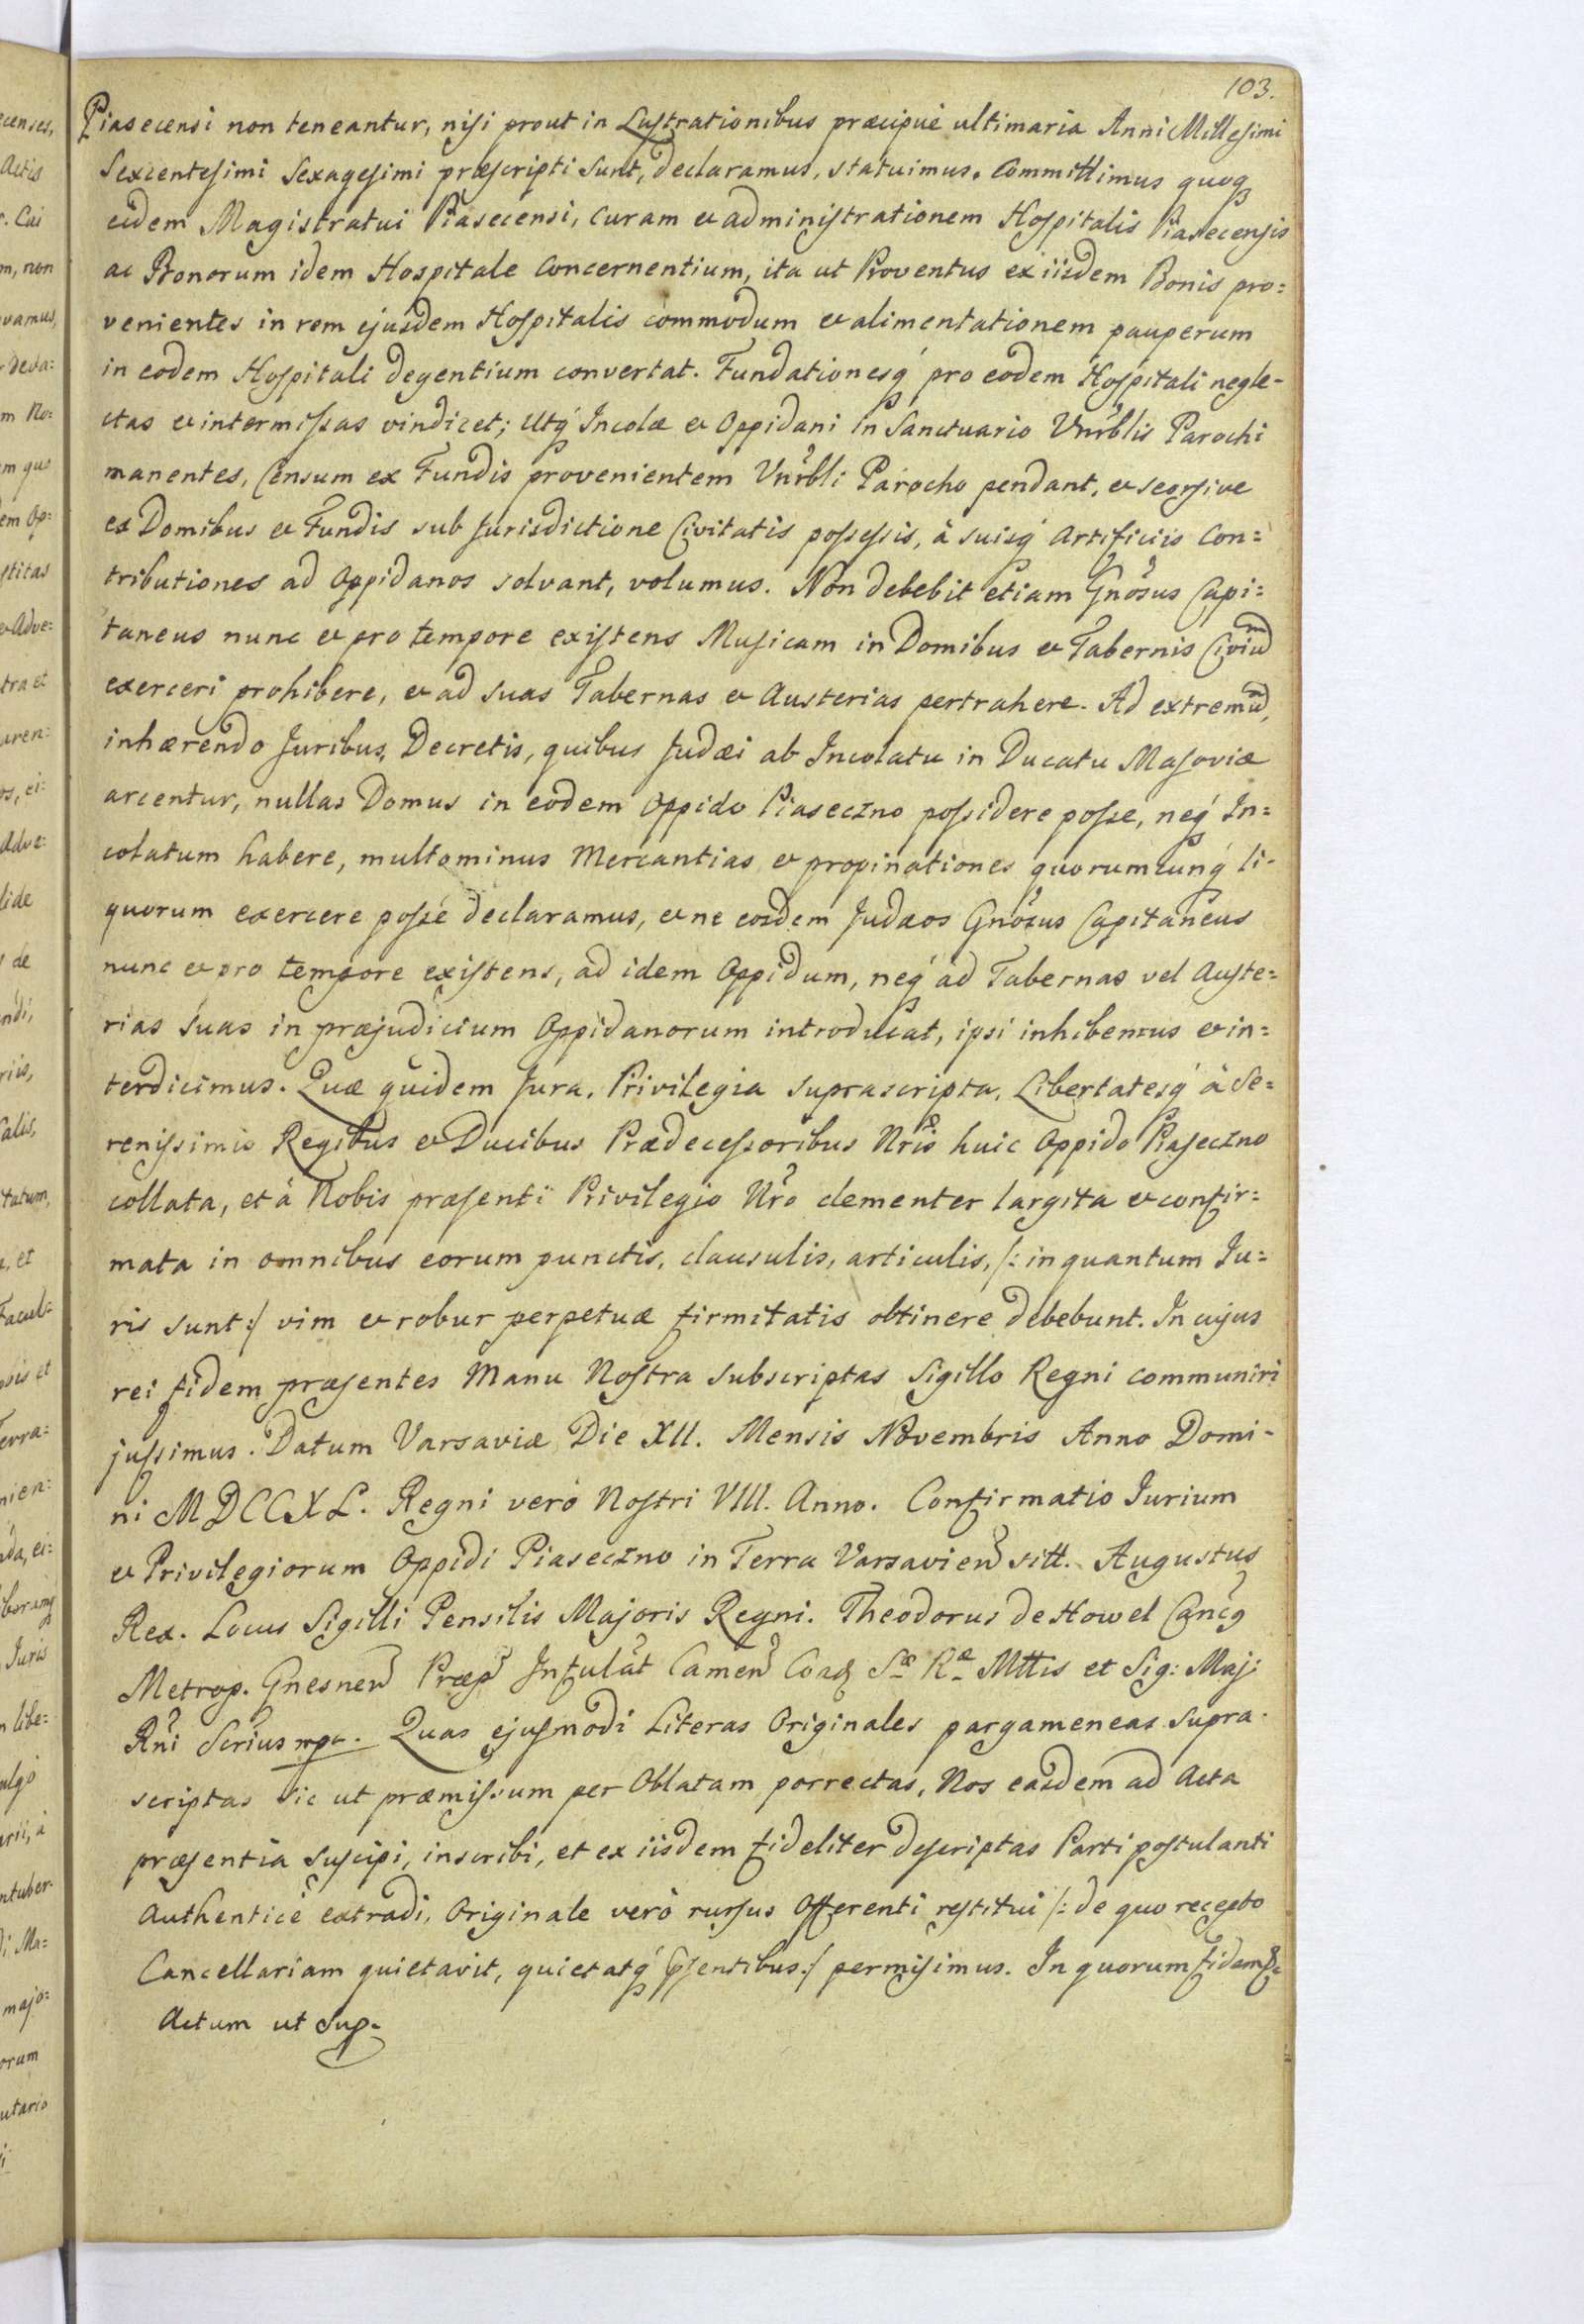 103.
Piasecensi non teneantur, nisi prout in Lustrationibus præcipuè ultimaria Anni Millesimi
Sexcentesimi Sexagesimi præscripti sunt, declaramus, statuimus. Committimus quoq
eidem Magistratui Piasecensi, curam et administrationem Hospitalis Piasecensis
ac Bonorum idem Hospitale Concernentium, ita ut Proventus ex iisdem Bonis pro=
venientes in rem ejusdem Hospitalis commodum et alimentationem pauperum
in eodem Hospitali degentium convertat. Fundationesq́ pro eodem Hospitali negle-
ctas et intermissas vindicet; Utq́ Incolæ et Oppidani in Sanctuario Vnrblis Parochi
manentes, Censum ex Fundis provenientem Vnrbli Parocho pendant, et seorsive
ex Domibus et Fundis sub Jurisdictione Civitatis possessis, à suisq́ Artificiis Con=
tributiones ad Oppidanos solvant, volumus. Non debebit etiam Gnosus Capi=
taneus nunc et pro tempore existens Musicam in Domibus et Tabernis Civium
exerceri prohibere, et ad suas Tabernas et Austerias pertrahere. Ad extremum,
inhærendo Juribus, Decretis, quibus Judæi ab Incolatu in Ducatu Masoviæ
arcentur, nullas Domus in eodem Oppido Piaseczno possidere posse, neq́ In=
colatum habere, multominus Mercantias et propinationes quorumcunq́ li-
quorum exercere posse declaramus, et ne eosdem Judæos Gnosus Capitaneus
nunc et pro tempore existens, ad idem Oppidum, neq́ ad Tabernas vel Auste=
rias suas in præjudicium Oppidanorum introducat, ipsi inhibemus et in=
terdicimus. Quæ quidem Jura, Privilegia suprascripta, Libertatesq́ à Se=
renissimis Regibus et Ducibus Prædecessoribus Nris huic Oppido Piaseczno
collata, et à Nobis præsenti Privilegio Nro clementer largita et confir=
mata in omnibus eorum punctis, clausulis, articulis, /: in quantum Iu=
ris sunt :/ vim et robur perpetuæ firmitatis obtinere debebunt. In cujus
rei fidem præsentes Manu Nostra subscriptas Sigillo Regni communiri
jussimus. Datum Varsaviæ Die XII. Mensis Novembris Anno Domi-
ni MDCCXL. Regni verò Nostri VIII. Anno. Confirmatio Iurium
et Privilegiorum Oppidi Piaseczno in Terra Varsavien sitt. Augustus
Rex. Locus Sigilli Pensilis Majoris Regni. Theodorus de Howel Canc9
Metrop. Gnesnen Præp Infulat Camen Coad Sæ Ræ Mttis et Sig: Maj:
Rni Scrius mpr. Quas ejusmodi Literas Originales pargameneas supra-
scriptas sic ut præmissum per Oblatam porrectas, Nos easdem ad Acta
præsentia suscipi, inscribi, et ex iisdem fideliter descriptas Parti postulanti
Authenticè extradi, Originale verò rursus Offerenti restitui /: de quo recepto
Cancellariam quietavit, quietatq́ psentibus :/ permisimus. In quorum fidem &
Actum ut sup.